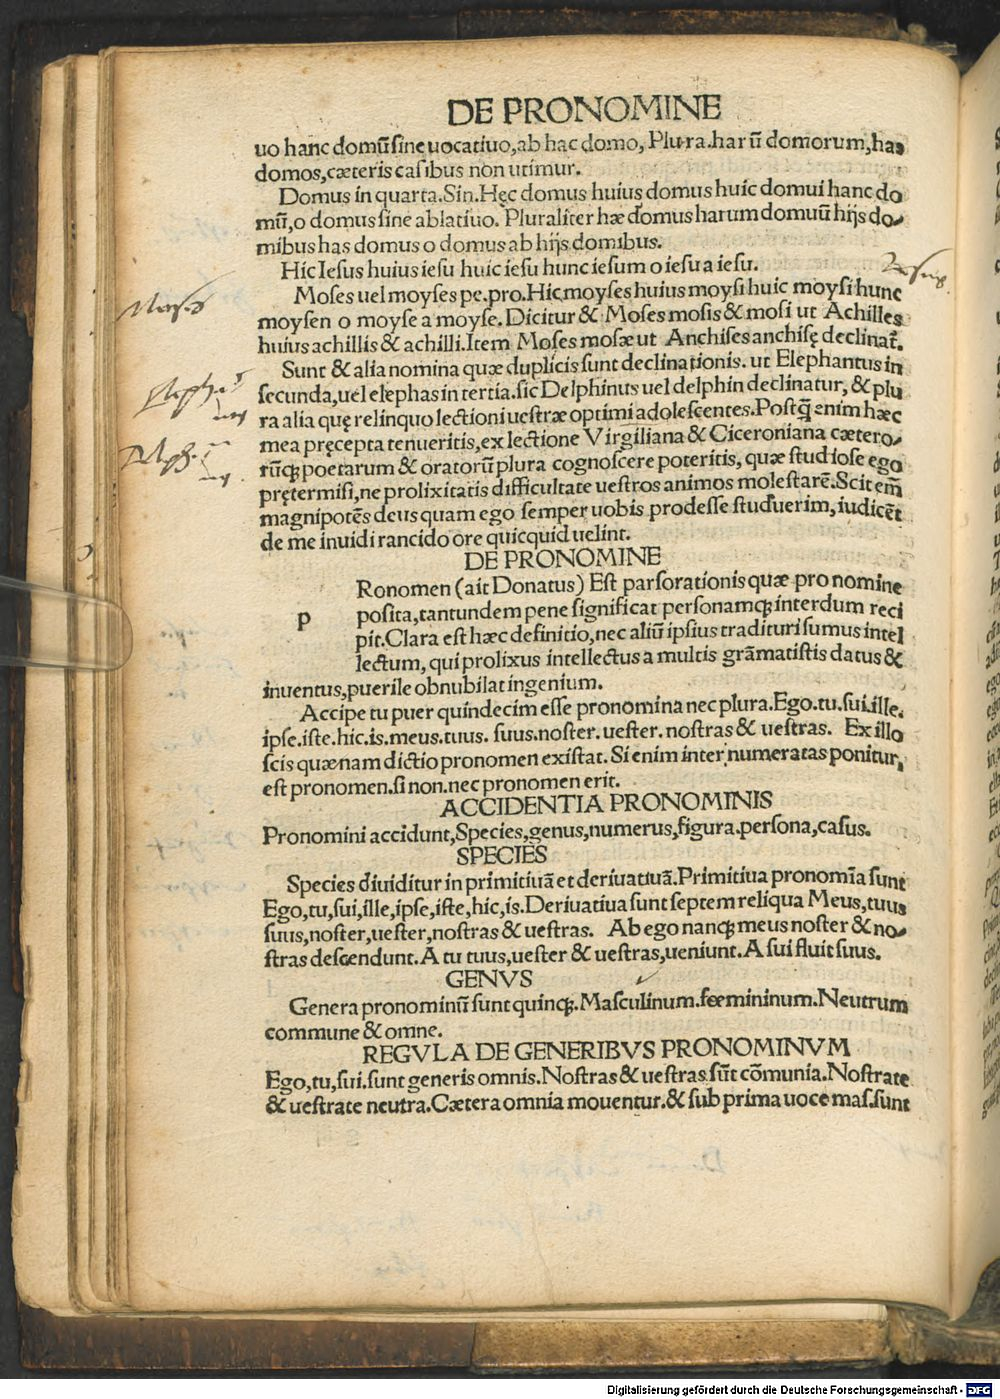 DE PRONOMINE
uo hanc domū sine uocatiuo, ab hac domo, Plu-ra. harū domorum, has
domos, cæteris casibus non utimur.
Domus in quarta. Sin. Hęc domus huius domus huic domui hanc do
mū, o domus sine ablatiuo. Pluraliter hæ domus harum domuū hijs do-
mibus has domus o domus ab hijs domibus.
Hic Iesus huius iesu huic iesu hunc iesum o iesu a iesu.
Iesus
Moses
Moses uel moyses pe. pro. Hic moyses huius moysi huic moysi hunc
moysen o moyse a moyse. Dicitur & Moses mosis & mosi ut Achilles
huius achillis & achilli. Item Moses mosæ ut Anchises anchisę declinat̃.
Sunt & alia nomina quæ duplicis sunt declinationis. ut Elephantus in
secunda, uel elephas in tertia. sic Delphinus uel delphin declinatur, & plu
ra alia quę relinquo lectioni uestræ optimi adolescentes. Postq̃ enim hæc
mea pręcepta tenueritis, ex lectione Virgiliana & Ciceroniana cætero-
rūq; poetarum & oratorū plura cognoscere poteritis, quæ studiose ego
prętermisi, ne prolixitatis difficultate uestros animos molestarē. Scit em̄
magnipotēs deus quam ego semper uobis prodesse studuerim, iudicēt
de me inuidi rancido ore quicquid uelint.
DE PRONOMINE
p
Ronomen (ait Donatus) Est pars orationis quæ pro nomine
posita, tantundem pene significat personamq; interdum reci
pit. Clara est hæc definitio, nec aliū ipsius tradituri sumus intel
lectum, qui prolixus intellectus a multis grāmatistis datus &
inuentus, puerile obnubilat ingenium.
Accipe tu puer quindecim esse pronomina nec plura. Ego. tu. sui. ille.
ipse. iste. hic. is. meus. tuus. suus. noster. uester. nostras & uestras. Ex illo
scis quænam dictio pronomen existat. Si enim inter numeratas ponitur,
est pronomen. si non. nec pronomen erit.
ACCIDENTIA PRONOMINIS
Pronomini accidunt, Species, genus, numerus, figura. persona, casus.
SPECIES
Species diuiditur in primitiuā et deriuatiuā. Primitiua pronomīa sunt
Ego, tu, sui, ille, ipse, iste, hic, is. Deriuatiua sunt septem reliqua Meus, tuus
suus, noster, uester, nostras & uestras. Ab ego nanq; meus noster & no-
stras descendunt. A tu tuus, uester & uestras, ueniunt. A sui fluit suus.
GENVS
Genera pronominū sunt quinq;. Masculinum. foemininum. Neutrum
commune & omne.
REGVLA DE GENERIBVS PRONOMINVM
Ego, tu, sui. sunt generis omnis. Nostras & uestras sūt cōmunia. Nostrate
& uestrate neutra. Cætera omnia mouentur. & sub prima uoce mas. sunt
Digitalisierung gefördert durch die Deutsche Forschungsgemeinschaft - DFG